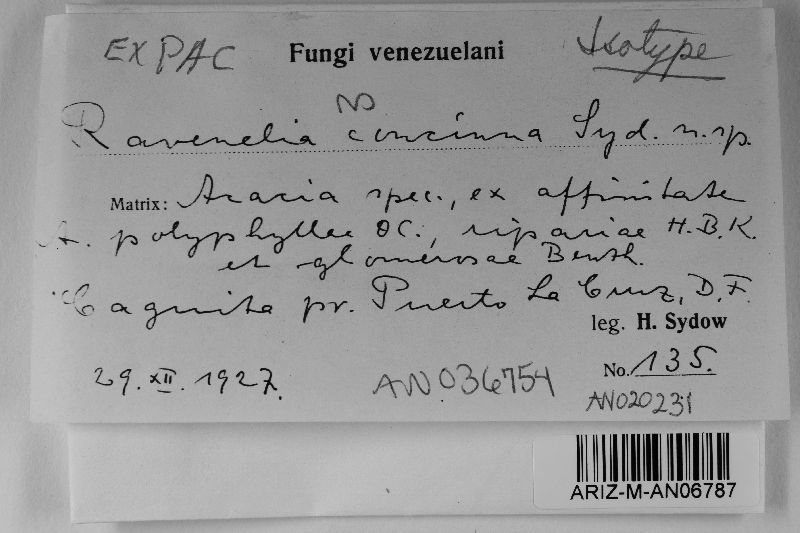 EX PAC Fungi venezuelani Isotype
Ravenelia concinna Syd. n. sp.
Matrix: Acacia spec., ex affinitate
A. polyphyllae DC., ripariae H.B.K.
et glomerosae Benth.
Caguita pr. Puerto La Cruz, D.F.
leg. H. Sydow
29. XII. 1927. AN036754 No. 135.
AN020231
ARIZ-M-AN06787